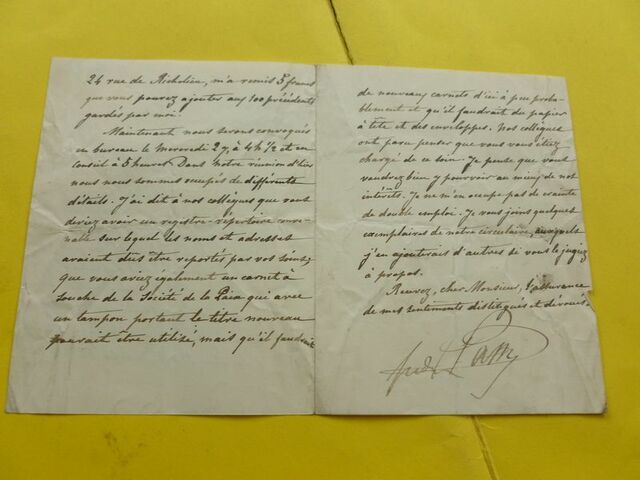 24 rue de Richelieu, m'a remis 5 francs
que vous pouvez ajouter aux 100 précédents
gardés par moi.
Maintenant nous serons convoqués
en bureau le Mercredi 27 à 4h 1/2 et en
conseil à 5 heures. Dans notre réunion d'hier
nous nous sommes occupés de différents
détails. J'ai dit à nos collègues que vous
deviez avoir un registre-répertoire conve-
nable sur lequel les noms et adresses
avaient dûs être reportés par vos soins,
que vous aviez également un carnet à
souche de la Société de la Paix qui avec
un tampon portant le titre nouveau
pourrait être utilisé, mais qu'il faudrait
de nouveaux carnets d'ici à peu proba-
blement et qu'il faudrait du papier
à tête et des enveloppes. Nos collègues
ont paru penser que vous vous étiez
chargé de ce soin. Je pense que vous
voudrez bien y pourvoir au mieux de nos
intérêts. Je ne m'en occupe pas de crainte
de double emploi. Je vous joins quelques
exemplaires de notre circulaire, auxquels
j'en ajouterais d'autres si vous le jugiez
à propos.
Recevez, cher Monsieur, l'assurance
de mes sentiments distingués et dévoués.
Passy